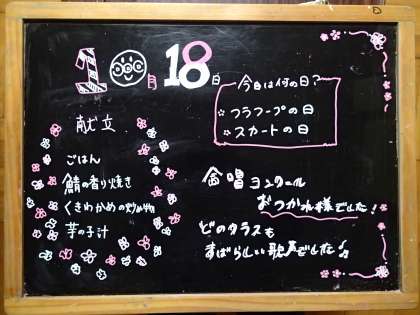 10月18日
今日は何の日？
☆フラフープの日
☆スカートの日
献立
ごはん
鯖の香り焼き
くきわかめの炒め物
芋の子汁
合唱コンクール
おつかれ様でした！
どのクラスも
すばらしい歌声でした♪